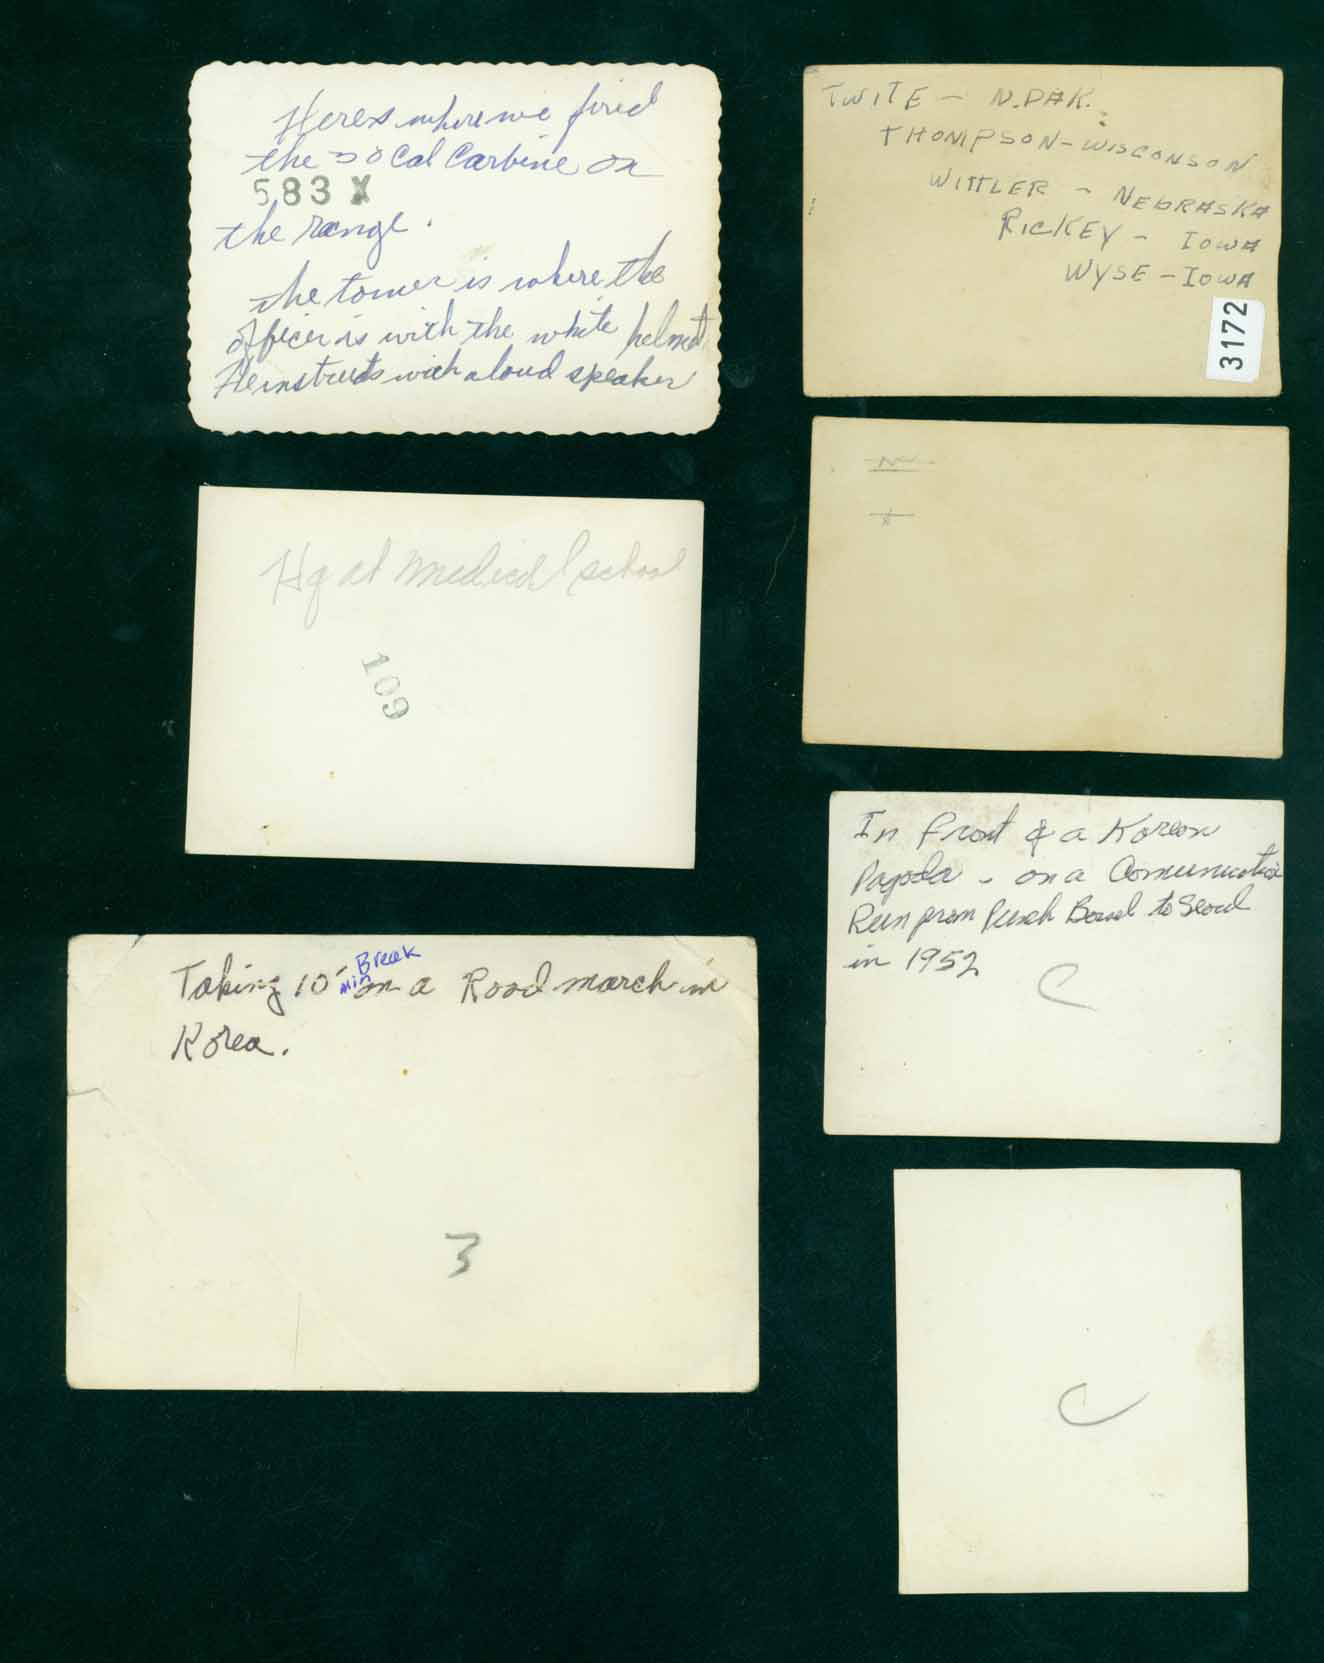 Heres where we fired
the 30 Cal Carbine on
583 X
the range.
the tower is where the
officer is with the white helmet
He instructs with a loud speaker
TWITE - N. DAK.
THOMPSON - WISCONSON
WITTLER - NEBRASKA
RICKEY - IOWA
WYSE - IOWA
3172
Hq at Medical school
109
In front of a Korean
Pagoda - on a Comunication
Run from Punch Bowl to Seoul
in 1952
C
Taking 10 min Break on a Road march in
Korea.
3
C